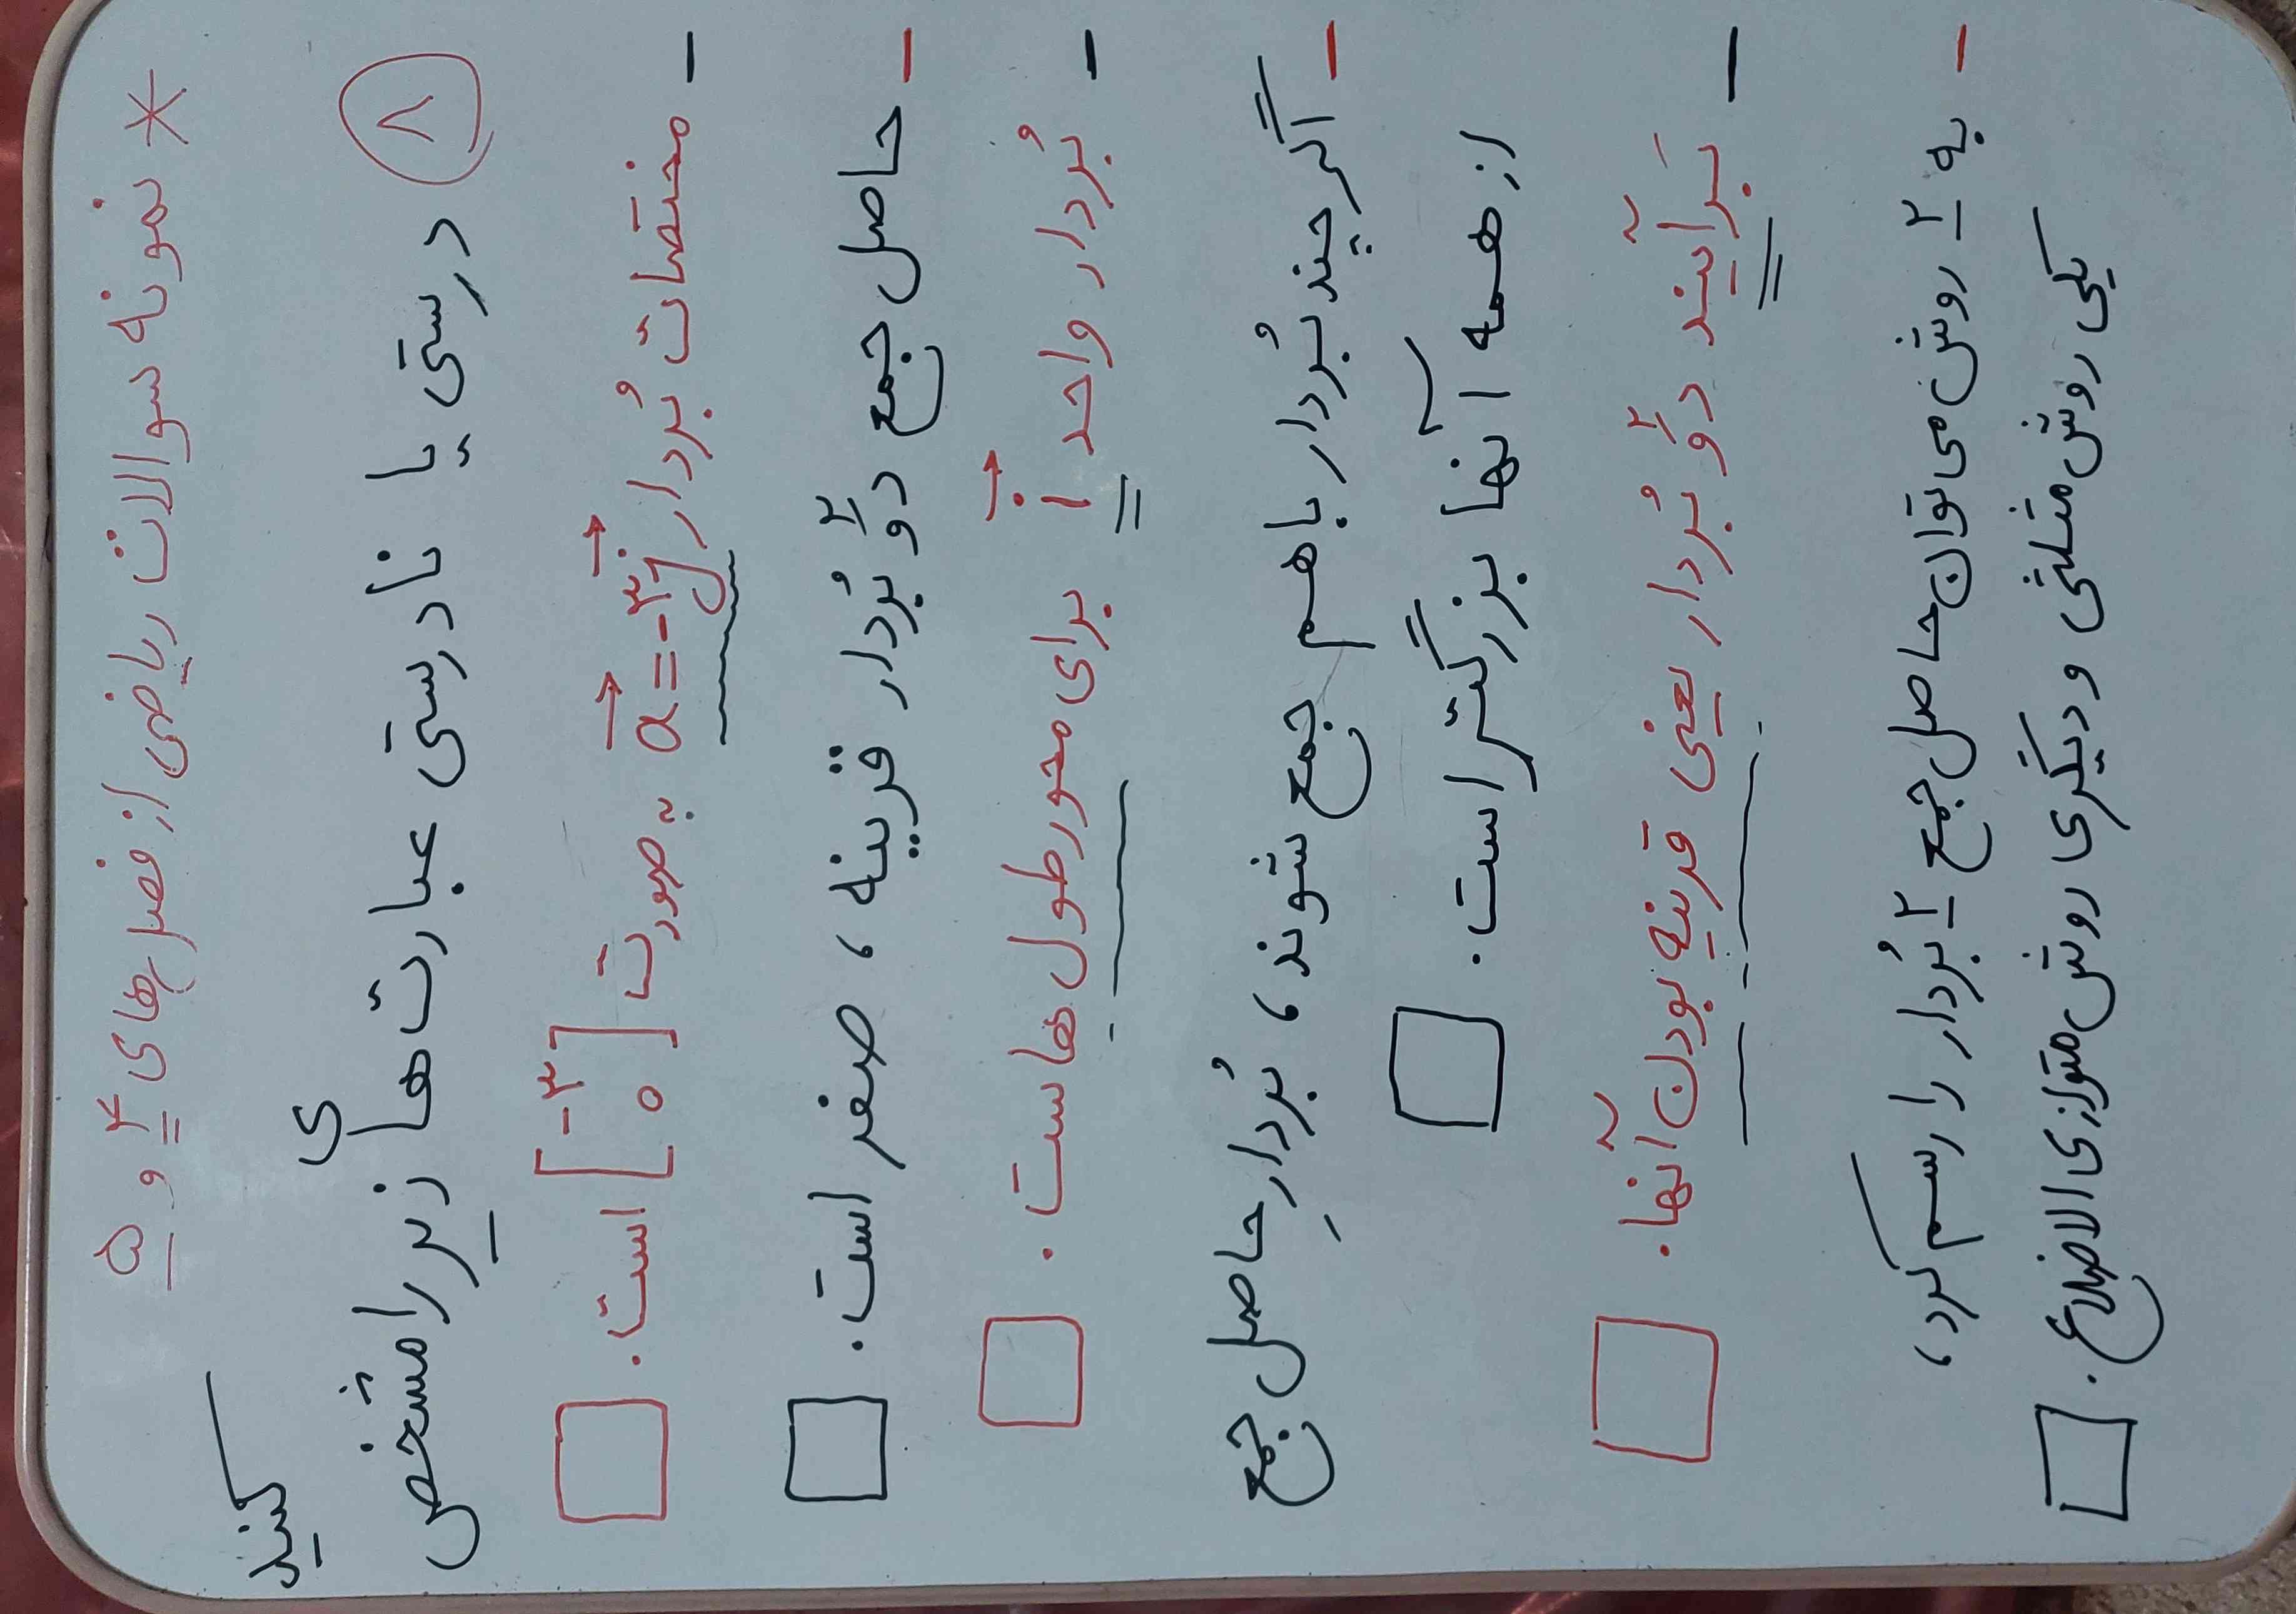 * نمونه سوالات ریاضی از فصل‌های ۴ و ۵
۸ درستی یا نادرستی عبارت‌های زیر را مشخص کنید
- مختصات بُردار a⃗ = -۳j⃗ به صورت [-۳ ۰] است. □
- حاصل جمع دو ۲ بُردار قرینه، صفر است. □
- بُردار واحد i⃗ برای محور طول هاست. □
- اگر چند بُردار با هم جمع شوند، بُردارِ حاصل جمع
از همه آنها بزرگتر است. □
- بَرآیند دو ۲ بُردار یعنی قرینه بودن آنها. □
- به ۲ روش می‌توان حاصل جمع ۲ بُردار را رسم کرد،
یکی روش مثلثی و دیگری روش متوازی الاضلاع. □